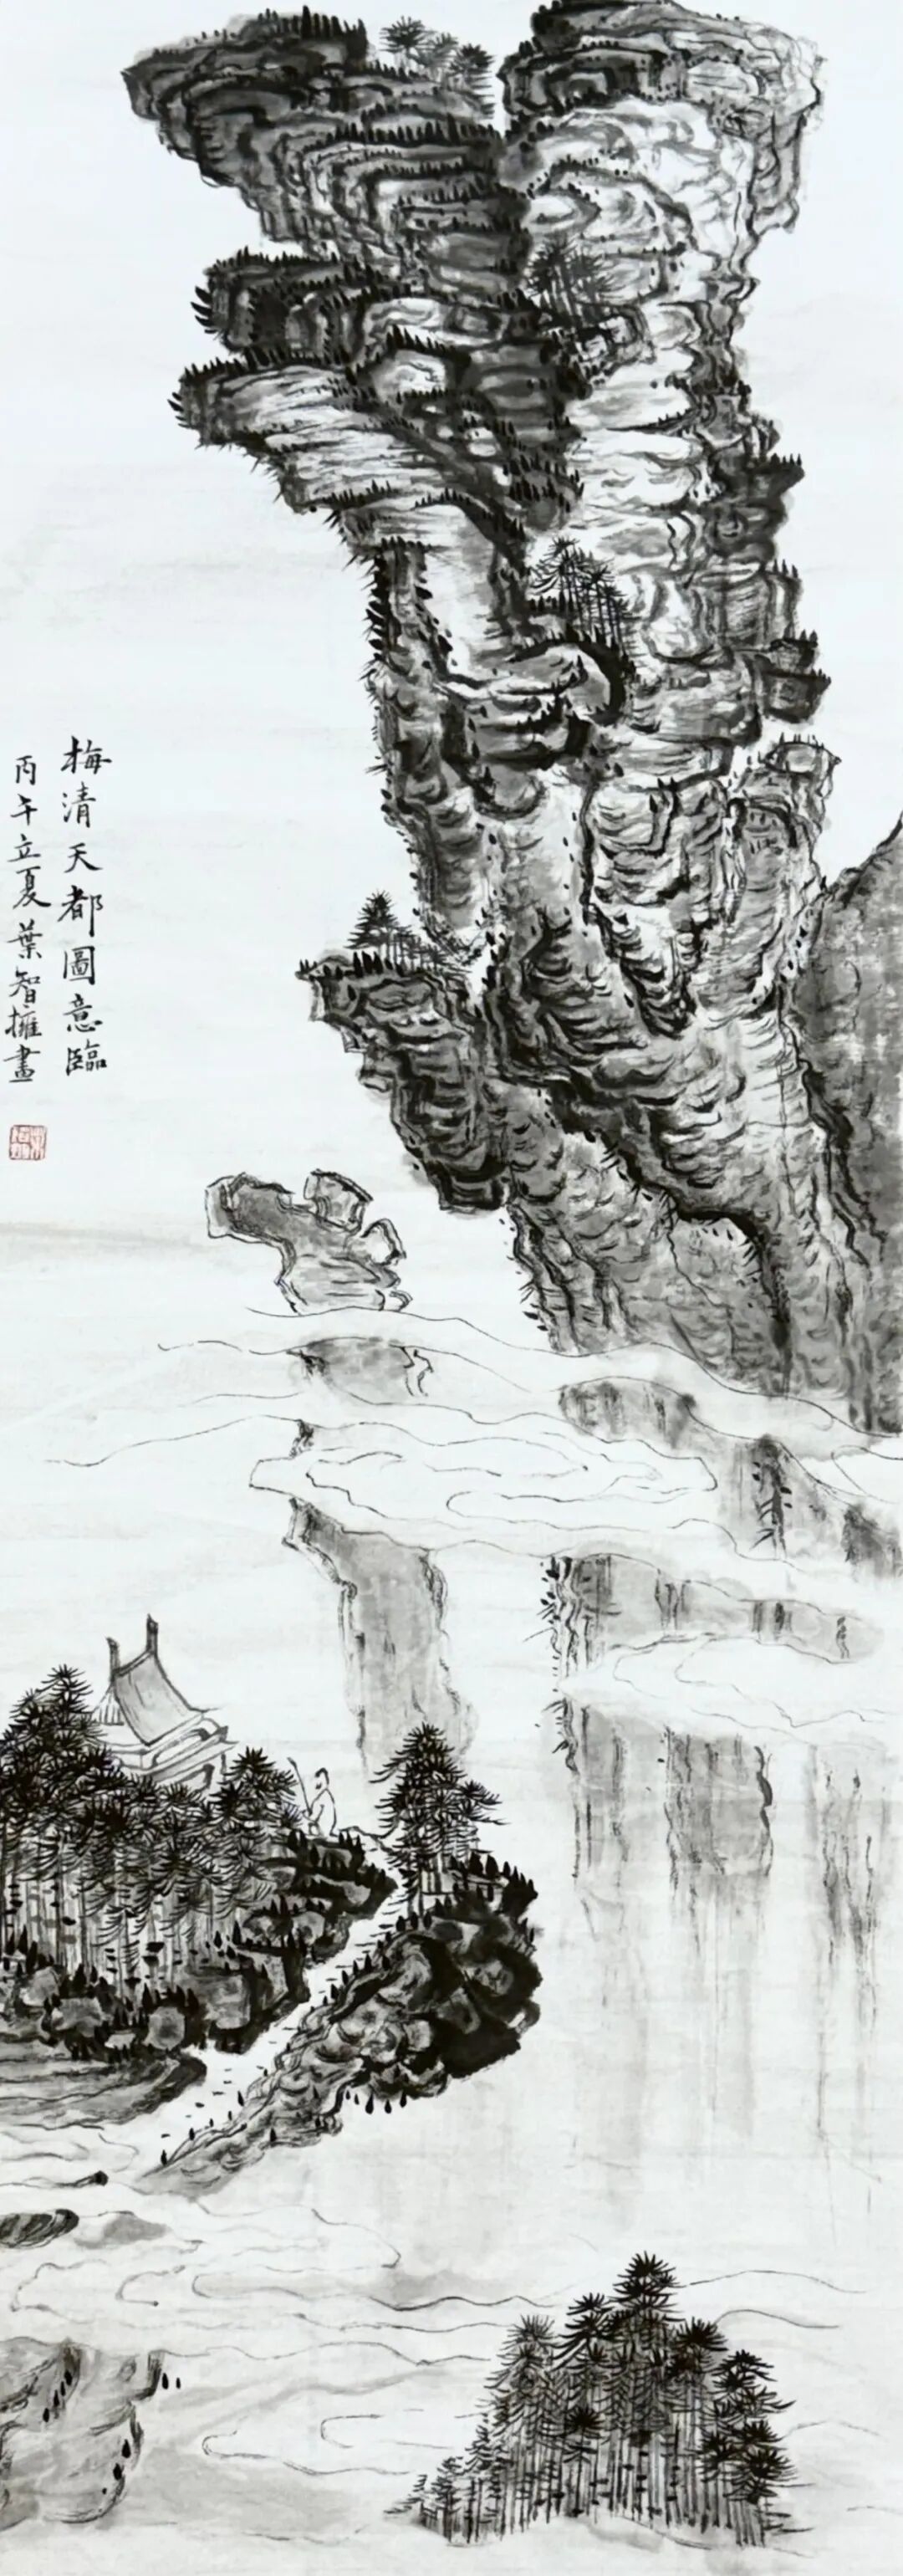 梅清天都圖意臨
丙午立夏葉智擁畫